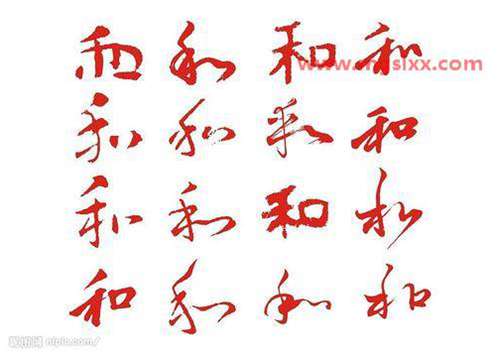 和 和 和 和
www.chgslxx.com
和 和 和 和
和 和 和 和
和 和 和 和
昵图网 nipic.com